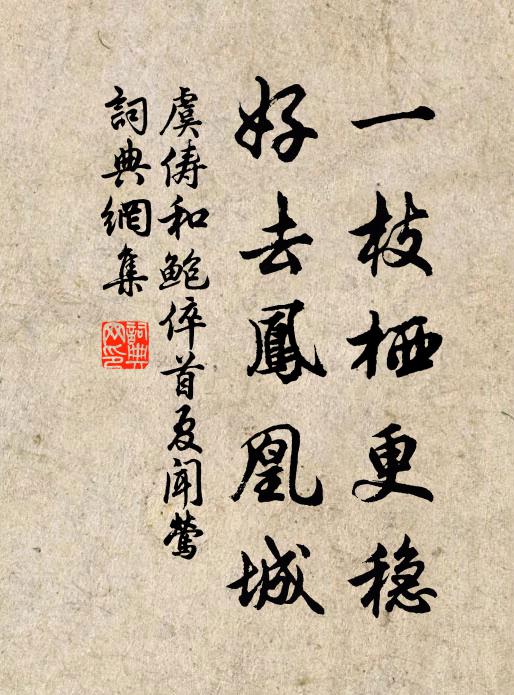 一枝栖更稳
好去鳳凰城
虞俦和鲍倅首夏闻莺
詞典網集
詞典网印